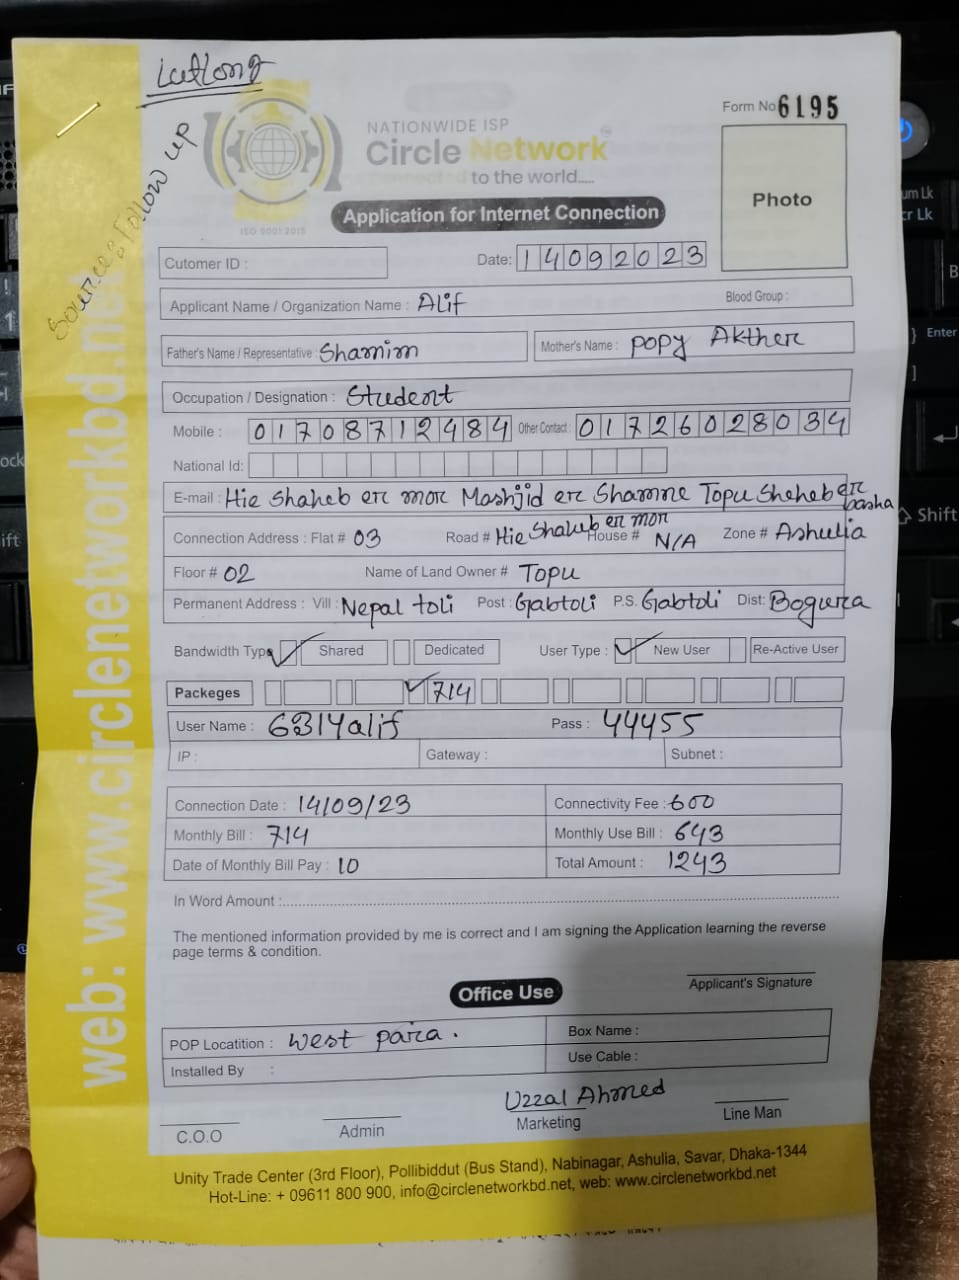 Latlong
Source: Follow up
Form No 6195
NATIONWIDE ISP
Circle Network
to the world.....
ISO 9001:2015
Photo
Application for Internet Connection
Cutomer ID :
Date: 14092023
Applicant Name / Organization Name : Alif Blood Group :
Father's Name / Representative : Shamim Mother's Name : Popy Akther
Occupation / Designation : Student
Mobile : 01708712484 Other Contact : 01726028034
National Id:
E-mail : Hie Shaheb er mor Mashjid er Shamne Topu Sheheb er basha
Connection Address : Flat # 03 Road # Hie Shaheb er mor House # N/A Zone # Ashulia
Floor # 02 Name of Land Owner # Topu
Permanent Address : Vill : Nepal toli Post : Gabtoli P.S. Gabtoli Dist: Bogura
Bandwidth Type Shared Dedicated User Type : New User Re-Active User
Packeges 714
User Name : Pass : 44455
IP : Gateway : Subnet :
Connection Date : 14/09/23 Connectivity Fee : 600
Monthly Bill : 714 Monthly Use Bill : 643
Date of Monthly Bill Pay : 10 Total Amount : 1243
In Word Amount :
The mentioned information provided by me is correct and I am signing the Application learning the reverse
page terms & condition.
Applicant's Signature
Office Use
POP Locatition : West para. Box Name :
Installed By : Use Cable :
Uzzal Ahmed
C.O.O Admin Marketing Line Man
Unity Trade Center (3rd Floor), Pollibiddut (Bus Stand), Nabinagar, Ashulia, Savar, Dhaka-1344
Hot-Line: + 09611 800 900, info@circlenetworkbd.net, web: www.circlenetworkbd.net
web: www.circlenetworkbd.net
Enter
Shift